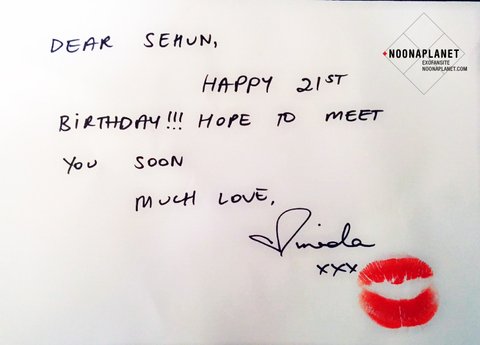 NOONAPLANET
EXOFANSITE
NOONAPLANET.COM
DEAR SEHUN,
HAPPY 21ST
BIRTHDAY!!! HOPE TO MEET
YOU SOON
MUCH LOVE,
xxx